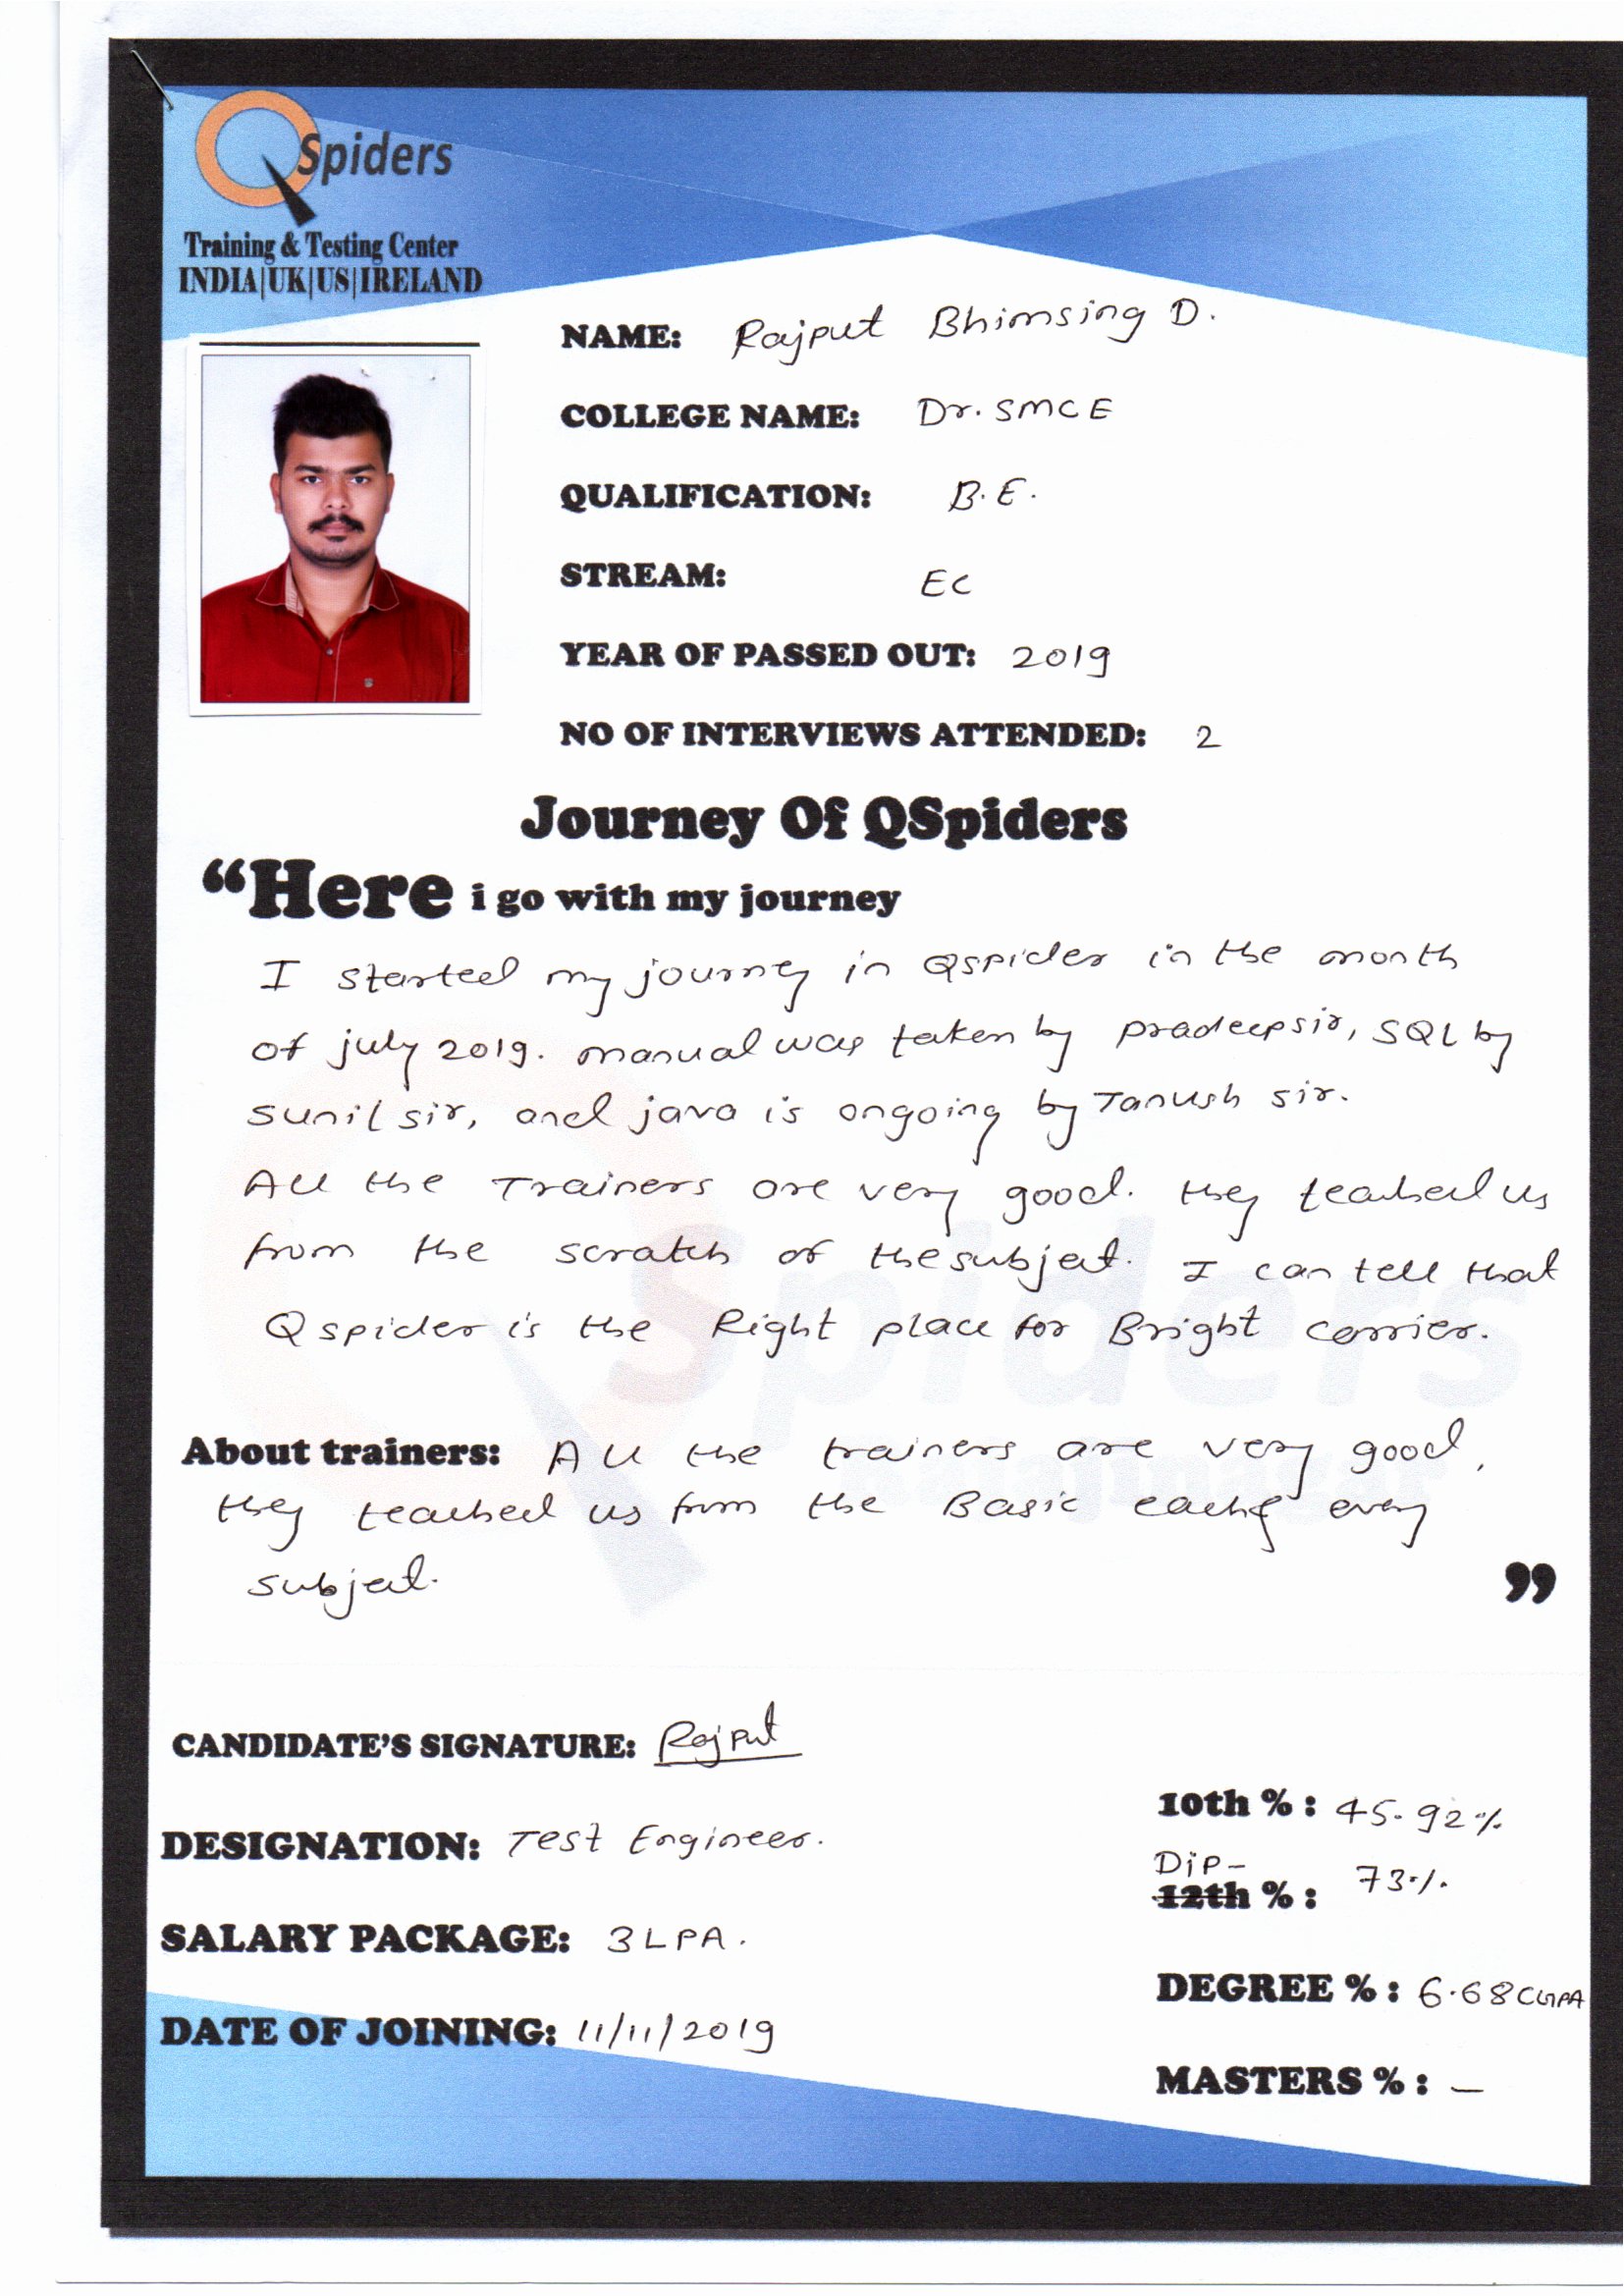 QSpiders
Training & Testing Center
INDIA|UK|US|IRELAND
NAME: Rajput Bhimsing D.
COLLEGE NAME: Dr. SMCE
QUALIFICATION: B.E.
STREAM: EC
YEAR OF PASSED OUT: 2019
NO OF INTERVIEWS ATTENDED: 2
Journey Of QSpiders
“Here i go with my journey
I started my journey in Qspider in the month
of july 2019. manual was taken by pradeep sir, SQL by
sunil sir, and java is ongoing by Tanush sir.
All the Trainers are very good. they teached us
from the scratch of the subject. I can tell that
Qspider is the Right place for Bright carrier.
About trainers: All the trainers are very good,
they teached us from the Basic each & every
subject.
”
CANDIDATE'S SIGNATURE: Rajput
DESIGNATION: Test Engineer.
SALARY PACKAGE: 3 LPA.
DATE OF JOINING: 11/11/2019
10th % : 45.92%
Dip-
12th % : 73%
DEGREE % : 6.68 CGPA
MASTERS % : –